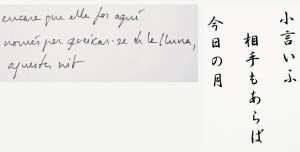 encara que ella fos aquí
només per queixar-se de la lluna,
aquesta nit
小言いふ
相手もあらば
今日の月